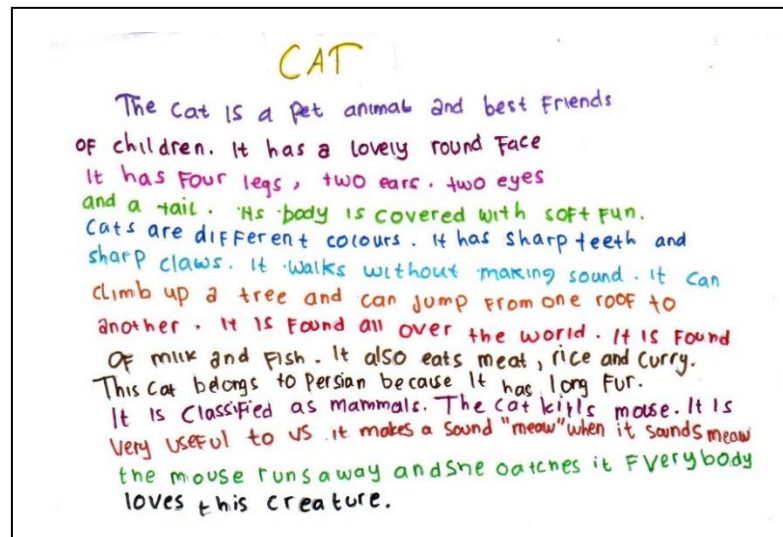 CAT
The cat is a pet animal and best Friends
OF children. It has a lovely round Face
It has Four legs, two ears. two eyes
and a tail. Its body is covered with soft fun.
Cats are different colours. It has sharp teeth and
sharp claws. It walks without making sound. It can
climb up a tree and can jump from one roof to
another. It is Found all over the world. It is Found
OF milk and Fish. It also eats meat, rice and curry.
This cat belongs to Persian because It has long Fur.
It is classified as mammals. The cat kills mouse. It is
very useful to us it makes a sound "meaw" when it sounds meaw
the mouse runs away and she catches it Everybody
loves this creature.